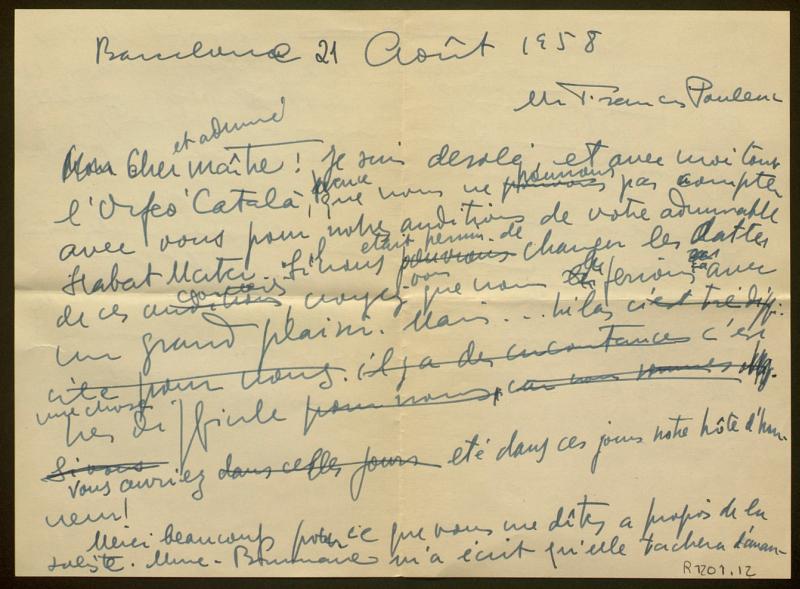 Barcelona 21 Août 1958
Mr Francis Poulenc
et admiré
Mon Cher Maître! Je suis desolé, et avec moi tout
l'Orfeó Català, que nous ne pouvons pournons pas compter
avec vous pour notre auditions de votre admirable
Stabat Mater. Si nous pouvions etait permis de changer les dattes
de ces auditions concerts, croyez vous que nous le ferions avec
un grand plaisir. Mais... hélas c'est tré diffi-
cile pour nous. il y a des circonstances c'est
une chose
tres difficile pour nous, car vous sommes
Si vous
vous auriez dans celles jours eté dans ces jours notre hôte d'hon-
neur!
Merci beaucoup pour ce que vous me dîtes a propos de la
soliste. Mme. m'a écrit qu'elle tachera d'avan-
R 1201.12